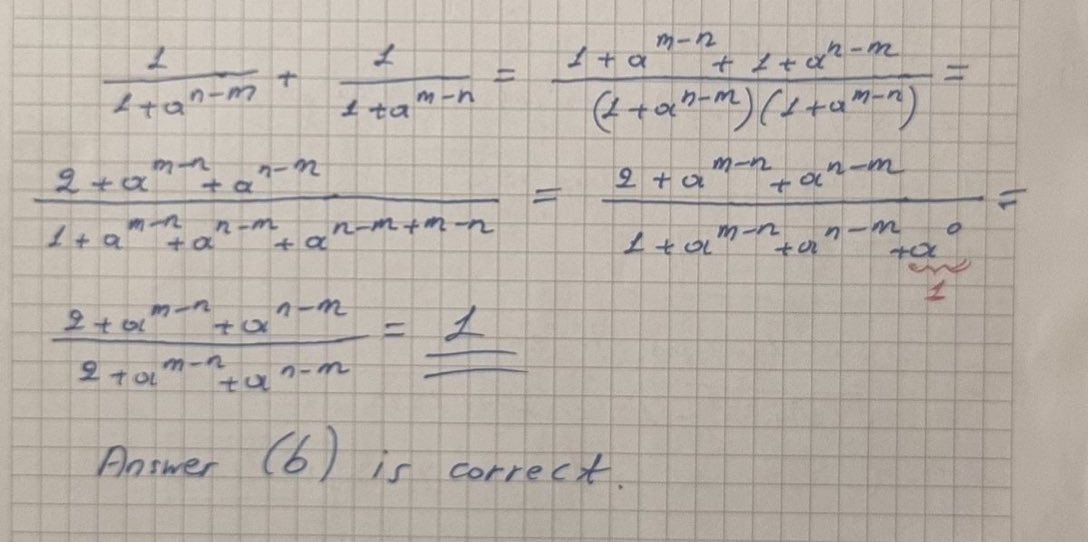 1/(1+a^(n-m)) + 1/(1+a^(m-n)) = (1+a^(m-n)+1+a^(n-m))/((1+a^(n-m))(1+a^(m-n))) =
(2+a^(m-n)+a^(n-m))/(1+a^(m-n)+a^(n-m)+a^(n-m+m-n)) = (2+a^(m-n)+a^(n-m))/(1+a^(m-n)+a^(n-m)+a^0) =
1
(2+a^(m-n)+a^(n-m))/(2+a^(m-n)+a^(n-m)) = 1
Answer (b) is correct.